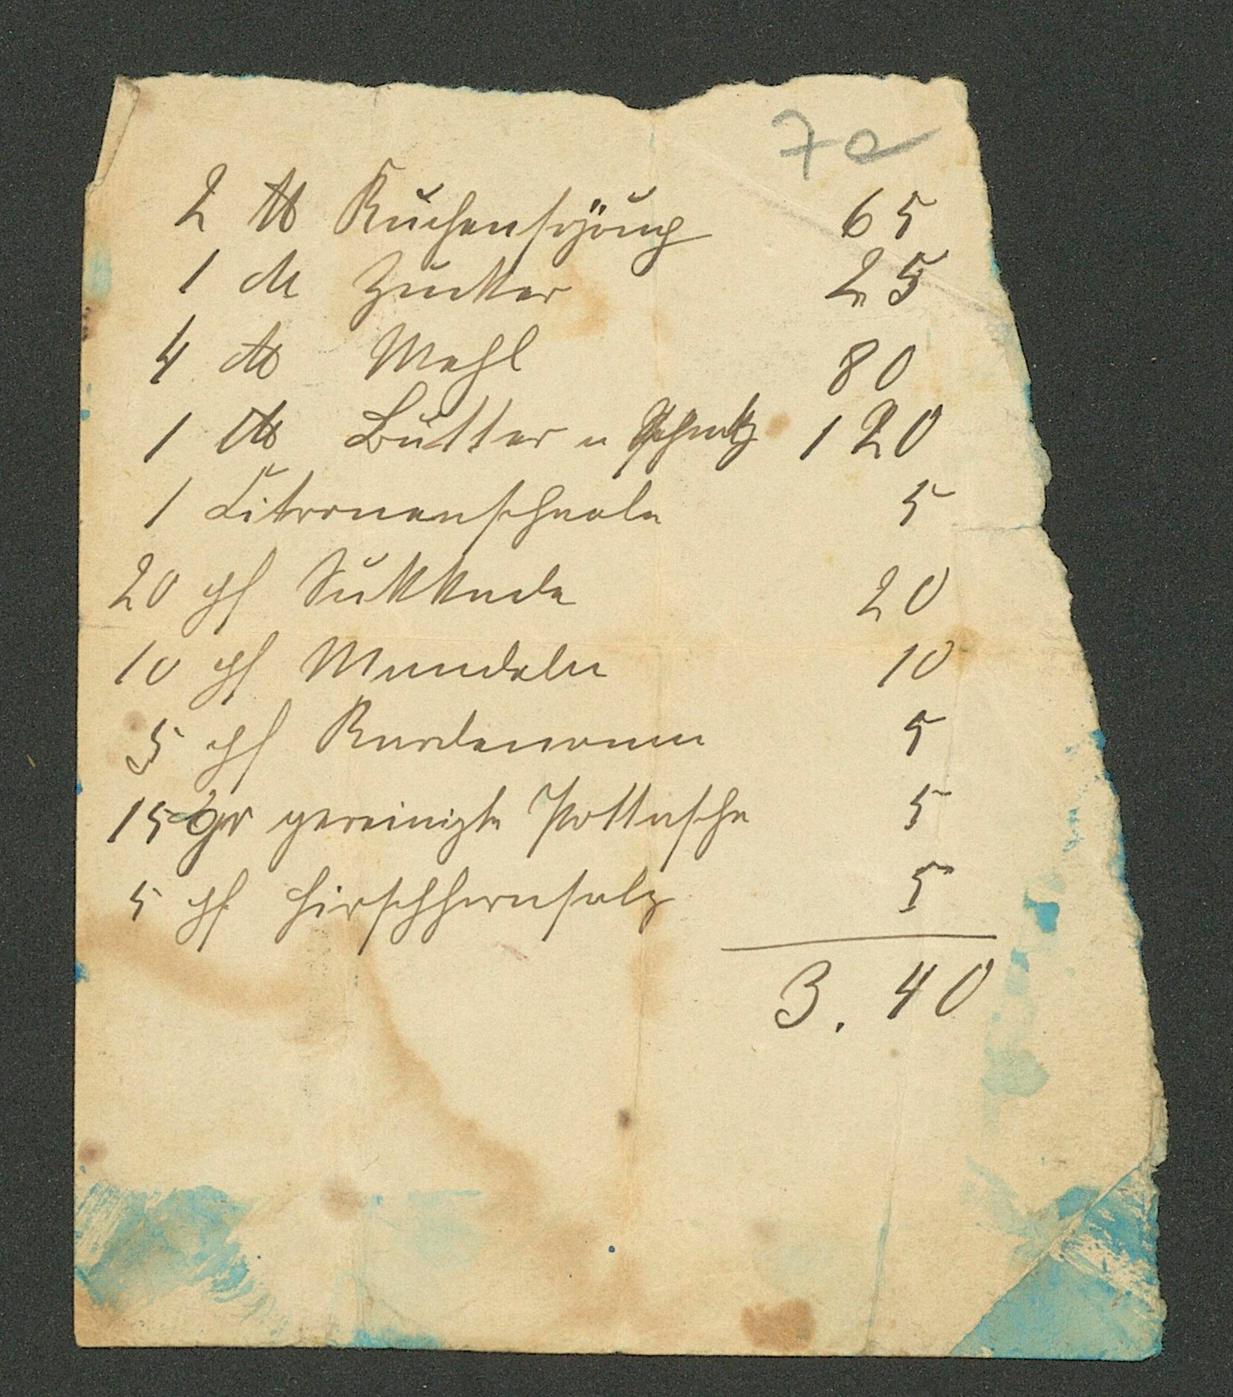 7a
2 ℔ Kuchensyrŭp 65
1 ℔ Zukker 25
4 ℔ Mehl 80
1 ℔ Butter u Schmalz 120
1 Citronenschaale 5
20 pf Sukkade 20
10 pf Mandeln 10
5 pf Kardemomm 5
15 gr gereinigte Pottasche 5
5 pf Hirschhornsalz 5
3.40